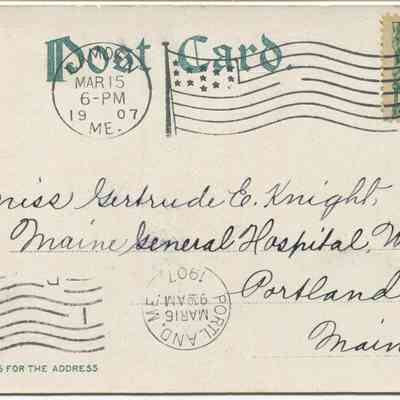 Post Card.
MAR 15
6-PM
19 07
ME.
Miss Gertrude E. Knight,
Maine General Hospital,
Portland
Main
PORTLAND, ME
MAR 16
9 30 AM
1907
S FOR THE ADDRESS